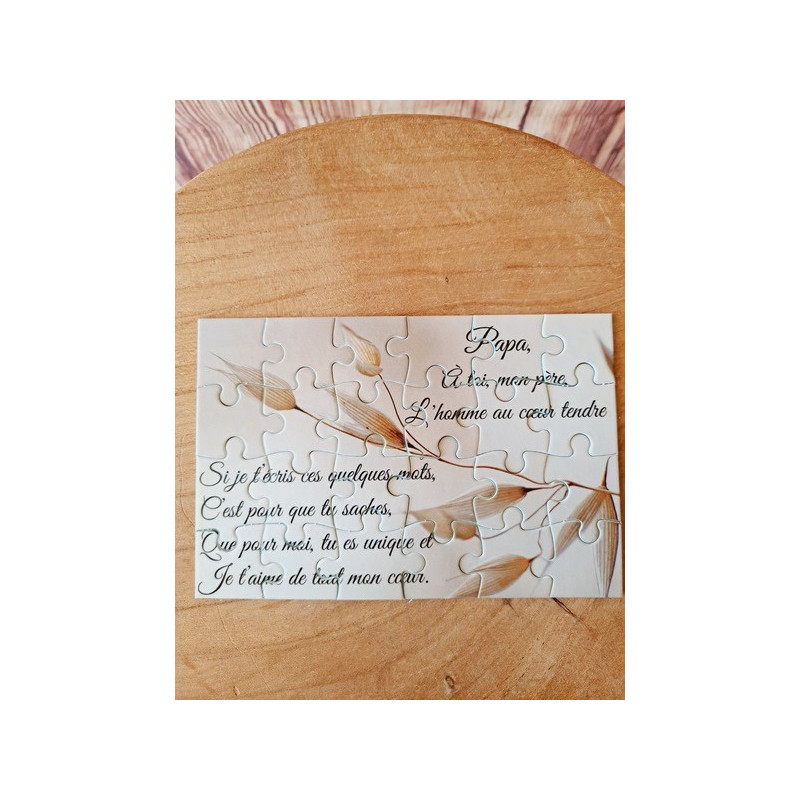 Papa,
À toi, mon père,
L'homme au cœur tendre
Si je t'écris ces quelques mots,
C'est pour que tu saches,
Que pour moi, tu es unique et
Je t'aime de tout mon cœur.